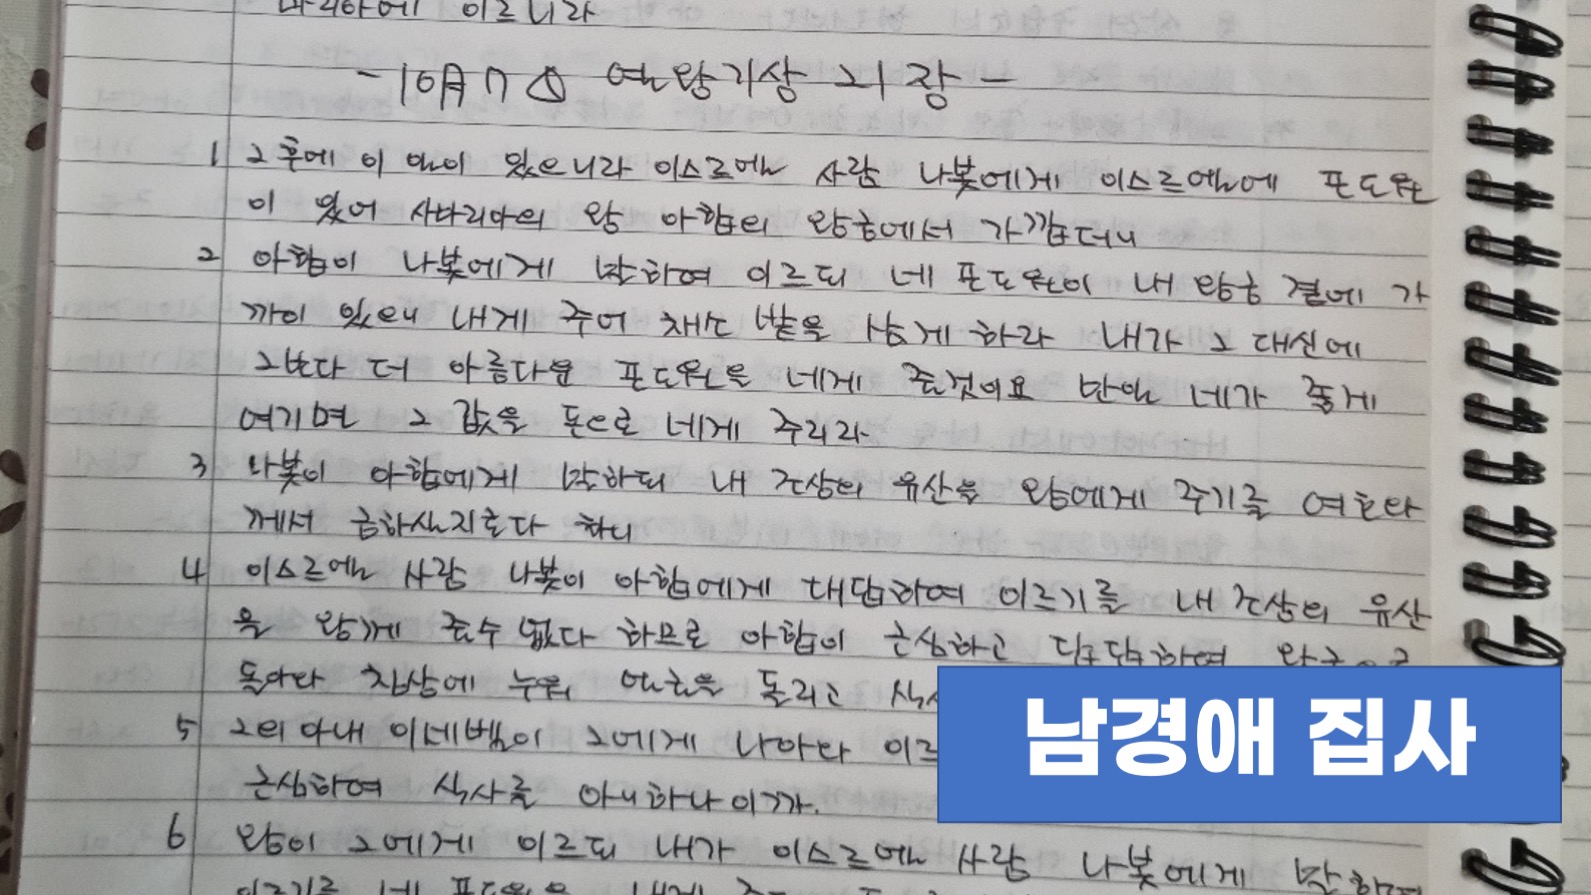 마리아에 이르니라
- 10월 7일 열왕기상 21장 -
1 그 후에 이 일이 있으니라 이스르엘 사람 나봇에게 이스르엘에 포도원
이 있어 사마리아의 왕 아합의 왕궁에서 가깝더니
2 아합이 나봇에게 말하여 이르되 네 포도원이 내 왕궁 곁에 가
까이 있으니 내게 주어 채소 밭을 삼게 하라 내가 그 대신에
그보다 더 아름다운 포도원을 네게 줄것이요 만일 네가 좋게
여기면 그 값을 돈으로 네게 주리라
3 나봇이 아합에게 말하되 내 조상의 유산을 왕에게 주기를 여호와
께서 금하실지로다 하니
4 이스르엘 사람 나봇이 아합에게 대답하여 이르기를 내 조상의 유산
을 왕께 줄수 없다 하므로 아합이 근심하고 답답하여 왕궁으로
돌아와 침상에 누워 얼굴을 돌리고
5 그의 아내 이세벨이 그에게 나아와
근심하여 식사를 아니하나이까.
6 왕이 그에게 이르되 내가 이스르엘 사람 나봇에게 말하여
이르기를 네 포도원을 내게
남경애 집사